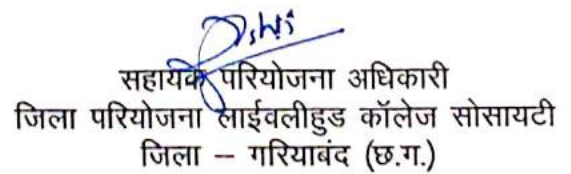 सहायक परियोजना अधिकारी
जिला परियोजना लाईवलीहुड कॉलेज सोसायटी
जिला – गरियाबंद (छ.ग.)